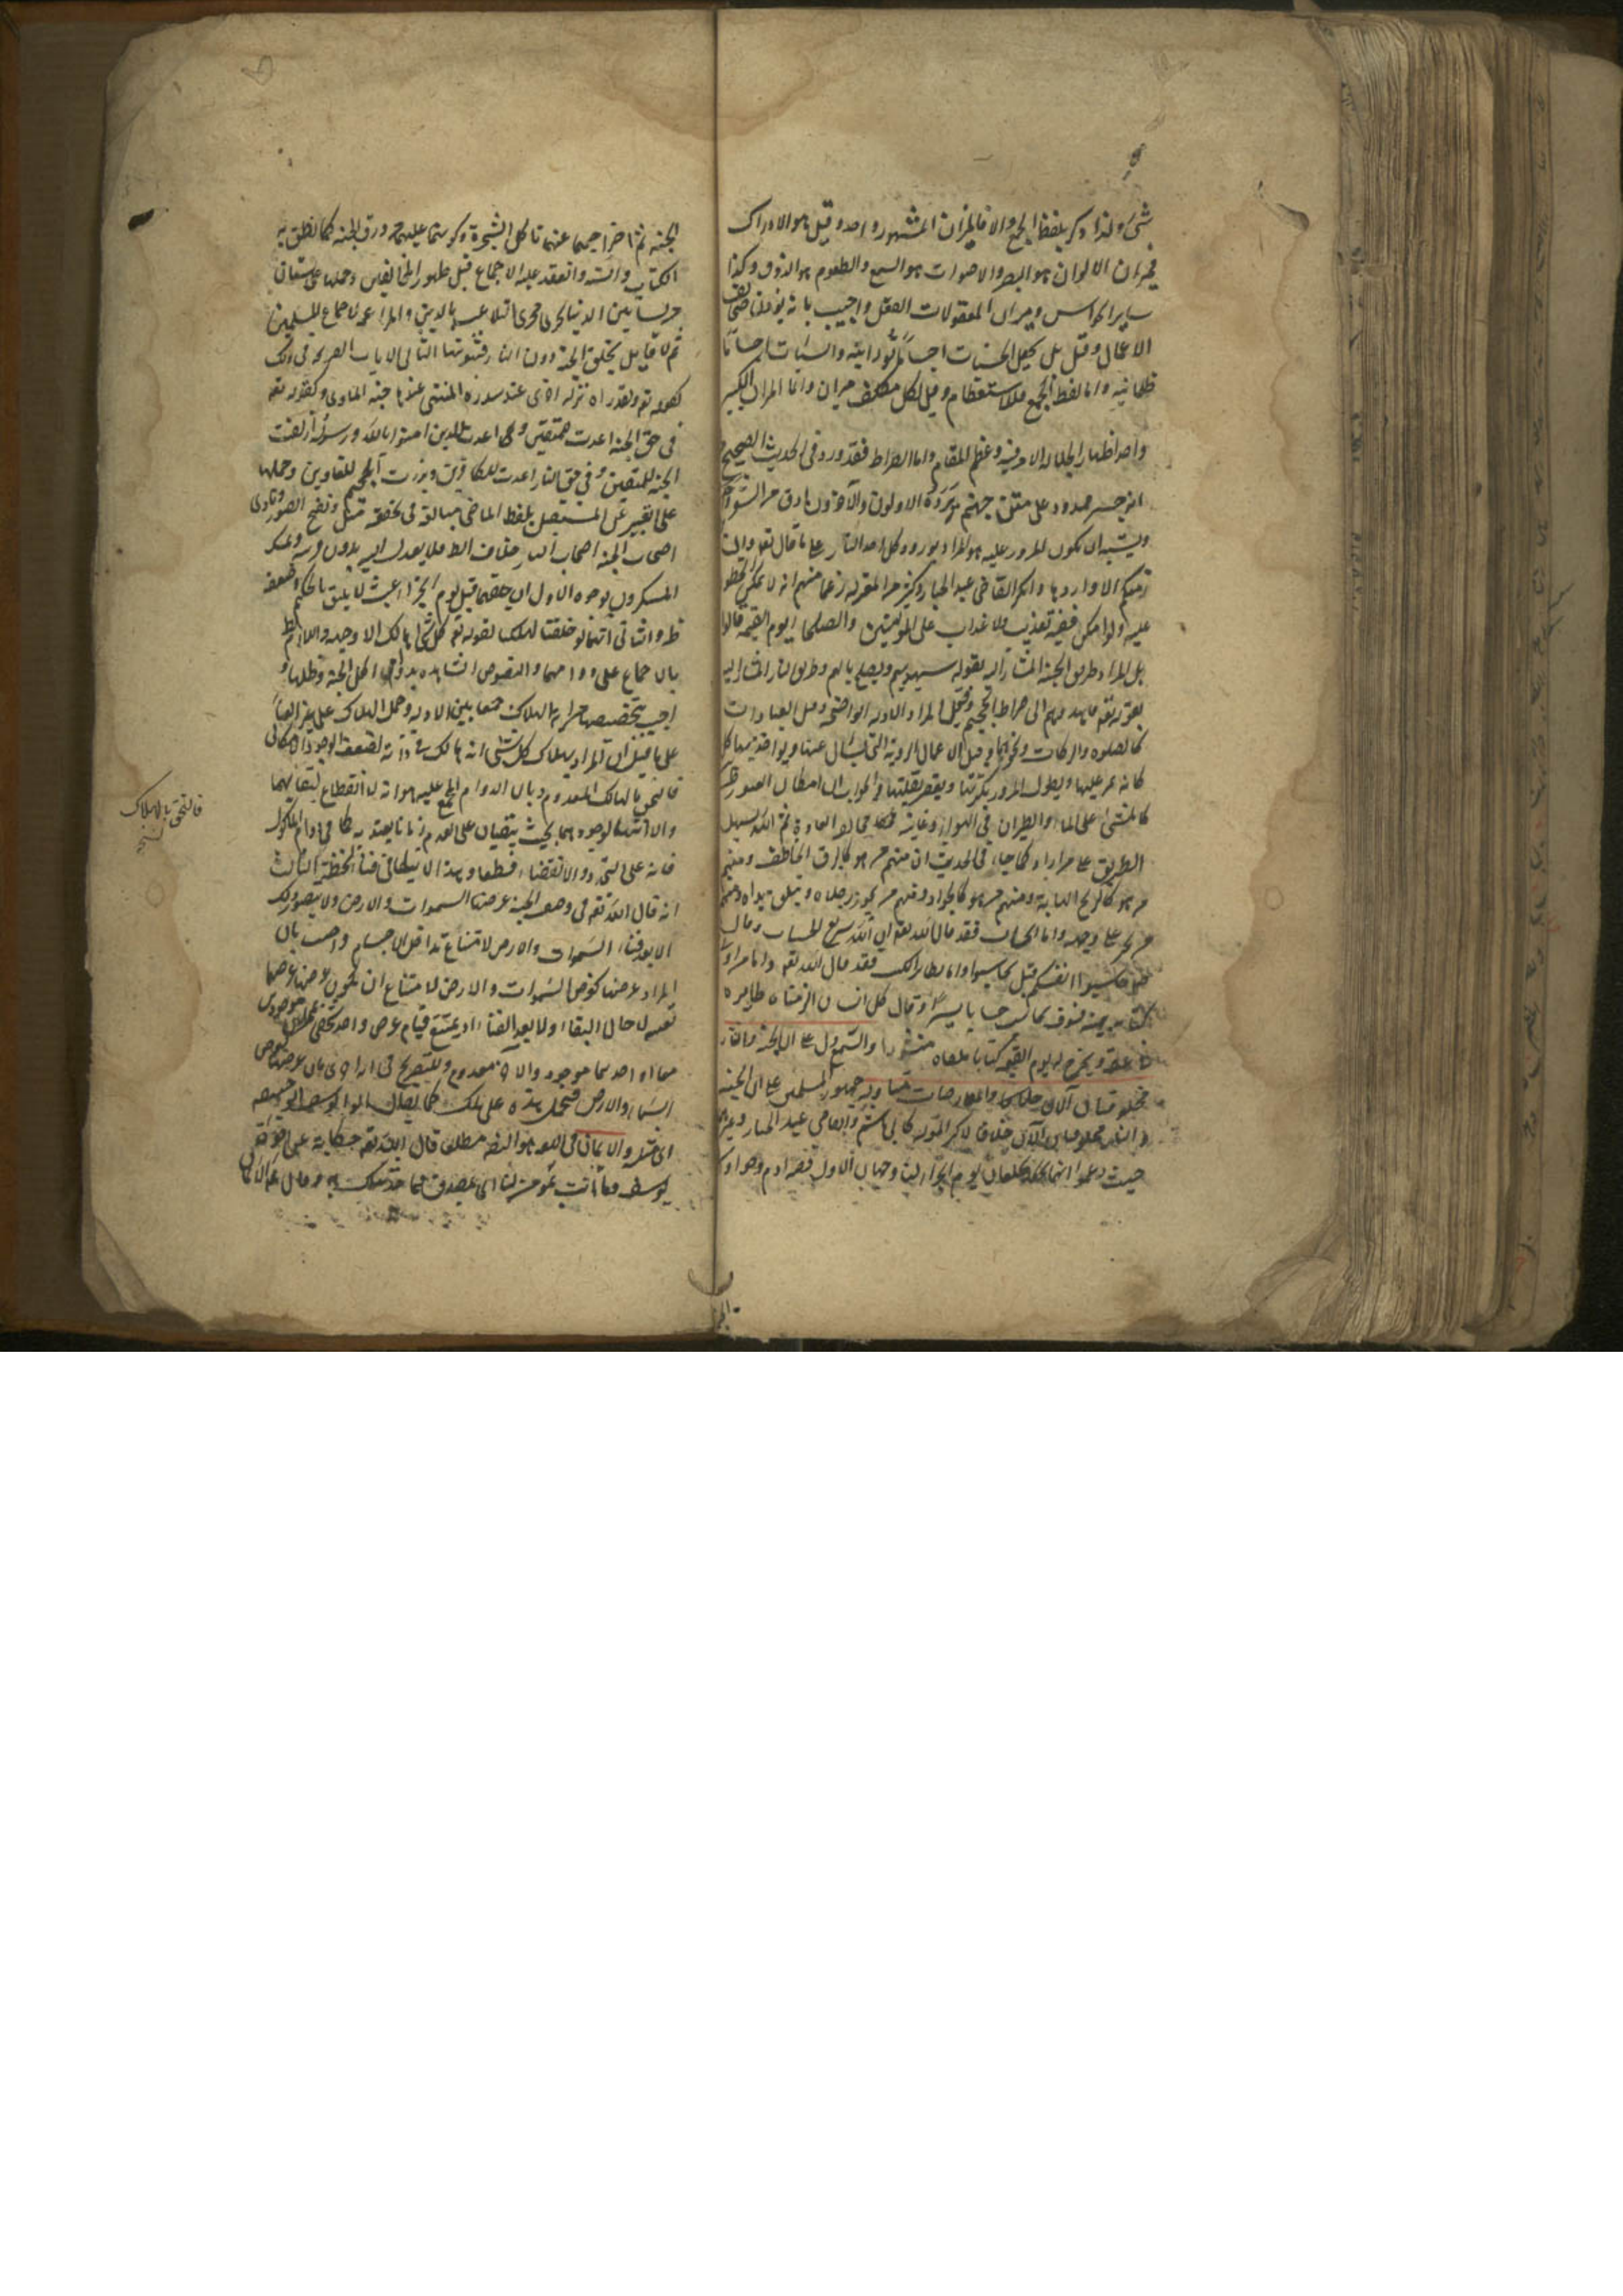 شئ ولذا ذكر بلفظ الجمع والا فالميزان المشهور واحد وقيل هو الادراك
فميزان الالوان هو البصر والاصوات هو السمع والطعوم هو الذوق وكذا
ساير الحواس وميزان المعقولات العقل واجيب بانه يوزن صحائف
الاعمال وقيل بل يجعل الحسنات اجساما نورانية والسيئات اجساما
ظلمانية واما لفظ الجمع فللاستعظام وقيل لكل مكلف ميزان وانما الميزان الكبير
واحد اظهارا لجلالة الامر فيه وعظم المقام واما الصراط فقد ورد في الحديث الصحيح
انه جسر ممدود على متن جهنم يرده الاولون والآخرون ادق من الشعر
ويشبه ان يكون المرور عليه هو المراد بورود كل احد النار على ما قال تعالى وان
منكم الا واردها وانكر القاضي عبد الجبار وكثير من المعتزلة زعما منهم انه لا يمكن الخطو
عليه ولو امكن ففيه تعذيب ولا عذاب على المؤمنين والصلحاء يوم القيمة قالوا
بل المراد طريق الجنة المشار اليه بقوله سيهديهم ويصلح بالهم وطريق النار المشار اليه
بقوله تعالى فاهدوهم الى صراط الجحيم وقيل المراد الادلة الواضحة وقيل العبادات
كالصلوة والزكات ونحوهما وقيل الاعمال الردية التي يسأل عنها ويؤاخذ بها
كانه يمر عليها ويطول المرور بكثرتها ويقصر بقلتها والجواب ان امكان العبور ظاهر
كالمشي على الماء والطيران في الهواء وغايته مخالفة العادة ثم الله يسهل
الطريق على من اراد كما جاء في الحديث ان منهم من هو كالبرق الخاطف ومنهم
من هو كالريح الهابة ومنهم من هو كالجواد ومنهم من يجوز رجلاه ويتعلق يداه ومنهم
من يخر على وجهه واما الحساب فقد قال الله تعالى ان الله سريع الحساب وقال
حاسبوا انفسكم قبل ان تحاسبوا واما تطاير الكتب فقد قال الله تعالى واما من اوتي
كتابه بيمينه فسوف يحاسب حسابا يسيرا وقال كل انسان الزمناه طايره
في عنقه ونخرج له يوم القيمة كتابا يلقاه منشورا والسمع دل على ان الجنة والنار
مخلوقتان الآن والمعارضات متأولة جمهور المسلمين على ان الجنة
والنار مخلوقتان الآن خلافا لاكثر المعتزلة كابي هاشم والقاضي عبد الجبار وغيرهما
حيث زعموا انهما يخلقان يوم الجزاء لنا وجهان الاول قصة ادم وحواء
الجنة ثم اخراجهما عنها باكل الشجرة وكونهما عليهما من ورق الجنة كما نطق به
الكتاب والسنة وانعقد عليه الاجماع قبل ظهور المخالفين وحملها على بستان
من بساتين الدنيا يجري مجرى التلاعب بالدين والمراغمة لاجماع المسلمين
ثم لا قايل بخلق الجنة دون النار فثبوتها الثاني الايات الصريحة في ذلك
كقوله تعالى ولقد راه نزلة اخرى عند سدرة المنتهى عندها جنة الماوى وكقوله تعالى
في حق الجنة اعدت للمتقين وكما اعدت للذين امنوا بالله ورسوله ازلفت
الجنة للمتقين وفي حق النار اعدت للكافرين وبرزت الجحيم للغاوين وحملها
على التعبير عن المستقبل بلفظ الماضي مبالغة في تحققه مثل ونفخ في الصور ونادى
اصحاب الجنة اصحاب النار خلاف الظ فلا يعدل اليه بدون قرينة وتمسك
المنكرون بوجوه الاول ان خلقهما قبل يوم الجزاء عبث لا يليق بالحكيم وضعفه
ظ والثاني انهما لو خلقتا لهلكتا لقوله تعالى كل شئ هالك الا وجهه واللازم بط
بالاجماع على دوامهما والنصوص الشاهدة بدوام اكل الجنة وظلها و
اجيب بتخصيصهما من اية الهلاك جمعا بين الادلة وحمل الهلاك على غير الفناء
على ما قيل ان المراد بهلاك كل شئ انه هالك في ذاته لضعف الوجود الامكاني
فالتحق بالهالك المعدوم وبان الدوام المجمع عليه هو انه لا انقطاع لبقائهما
ولا انتهاء لوجودهما بحيث يبقيان على العدم زمانا يعتد به كما في دوام المأكول
فانه على التجدد والانقضاء قطعا وهذا لا ينافي فناء لحظة الثالث
انه قال الله تعالى في وصف الجنة عرضها السموات والارض ولا يتصور ذلك
الا بعد فناء السموات والارض لامتناع تداخل الاجسام واجيب بان
المراد عرضها كعرض السموات والارض لامتناع ان يكون عرضها عرضهما
بعينه لا حال البقاء ولا بعد الفناء اذ يمتنع قيام عرض واحد شخصي بمحلين موجودين
معا او احدهما موجود والاخر معدوم وللتصريح في اية اخرى بان عرضها كعرض
السماء والارض فتحمل هذه على تلك كما يقال ابو يوسف ابو حنيفة
اي مثله والايمان في اللغة هو التصديق مطلقا قال الله تعالى حكاية عن اخوة
يوسف وما انت بمؤمن لنا اي بمصدق فيما حدثناك به وقال عم الايمان
فالتحق بالهلاك
نسخه
الجنة